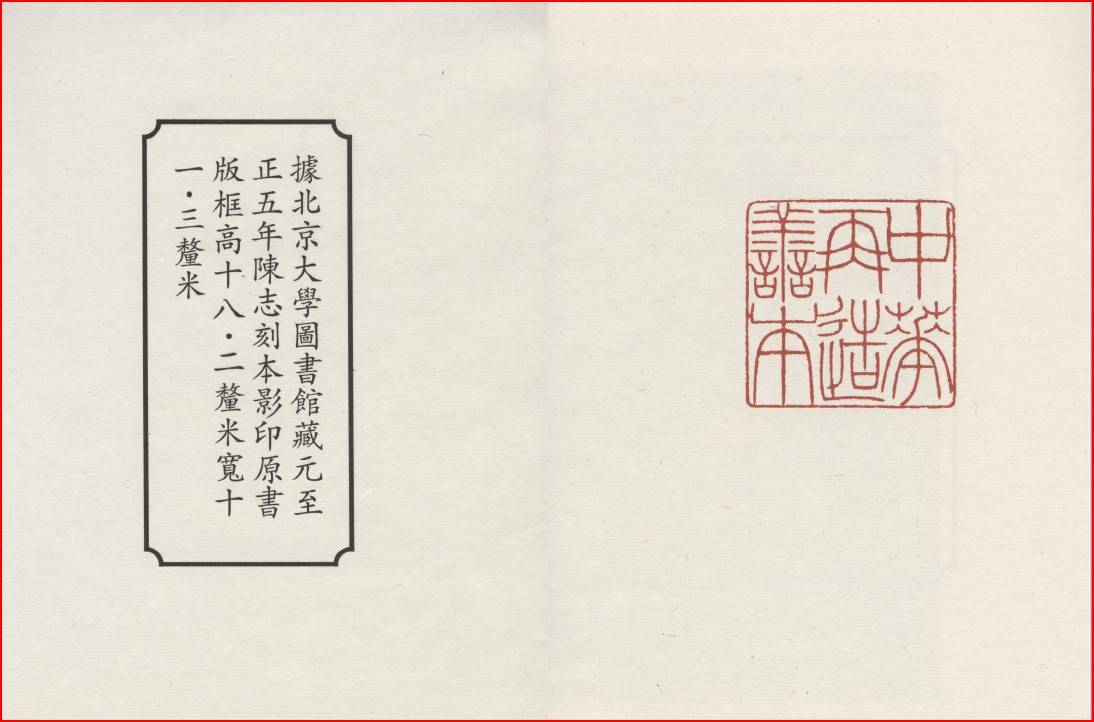 中華
再造
善本
據北京大學圖書館藏元至
正五年陳志刻本影印原書
版框高十八·二釐米寬十
一·三釐米